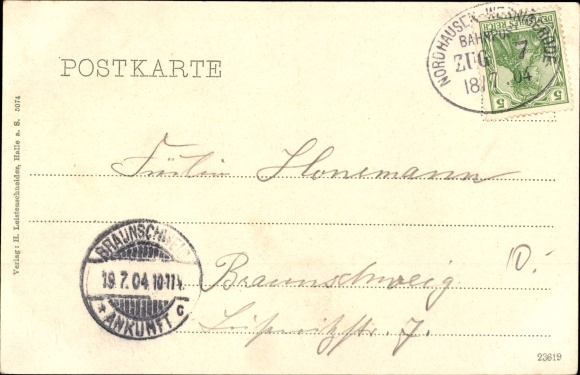 POSTKARTE
NORDHAUSEN-WERNIGERODE
BAHNPOST
ZUG 7
18/7 04
DEUTSCHES REICH
5 5
Verlag: H. Leistenschneider, Halle a. S. 5074
Fräulein Honemann
BRAUNSCHWEIG
19.7.04 10-11V.
* ANKUNFT C
Braunschweig
7.
23619